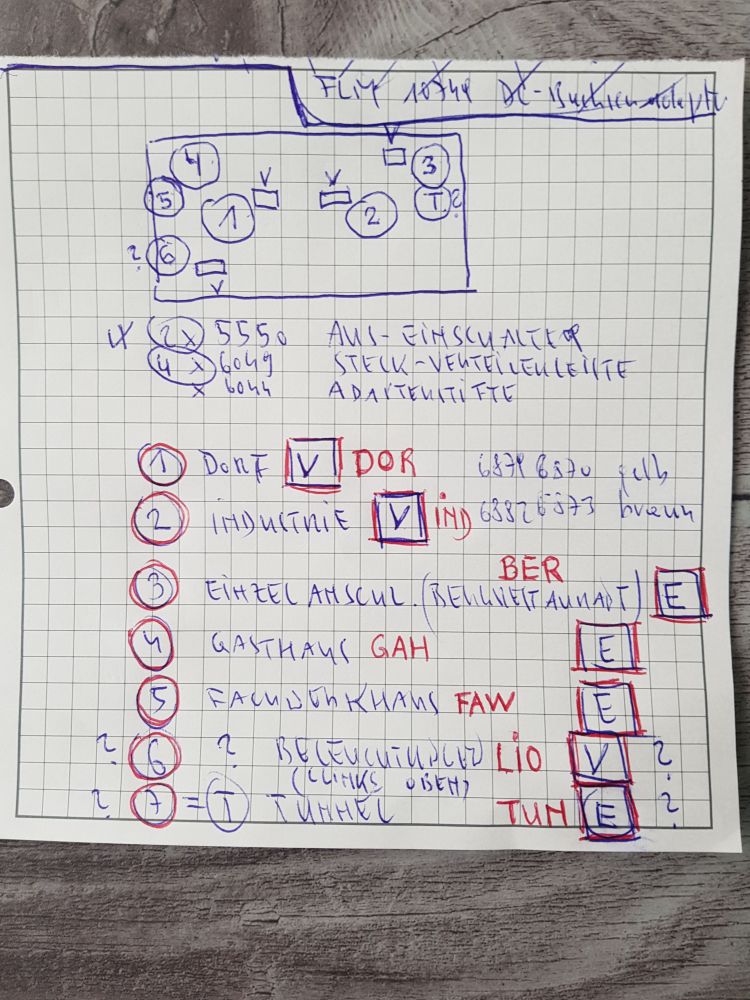 FLIM 10744 DC-
V
4 V V 3
5 1 2 T ?
? 6
V
2 x 5550 AUS-EINSCHALTER
4 x 6049 STECK-VERTEILERLEISTE
x 6044 ADAPTERSTIFTE
1 DORF V DOR 6870 gelb
2 INDUSTRIE V IND 6873 braun
BER
3 EINZELANSCHL. E
4 GASTHAUS GAH E
5 FACHWERKHAUS FAW E
? 6 ? BELEUCHTUNG LIO V ?
(LINKS OBEN)
? 7 = T TUNNEL TUN E ?